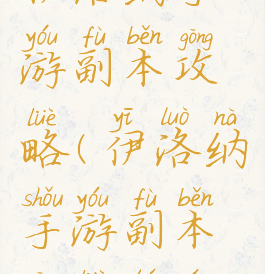 yóu fù běn gōng
游副本攻
lüè yī luò nà
略(伊洛纳
shǒu yóu fù běn
手游副本